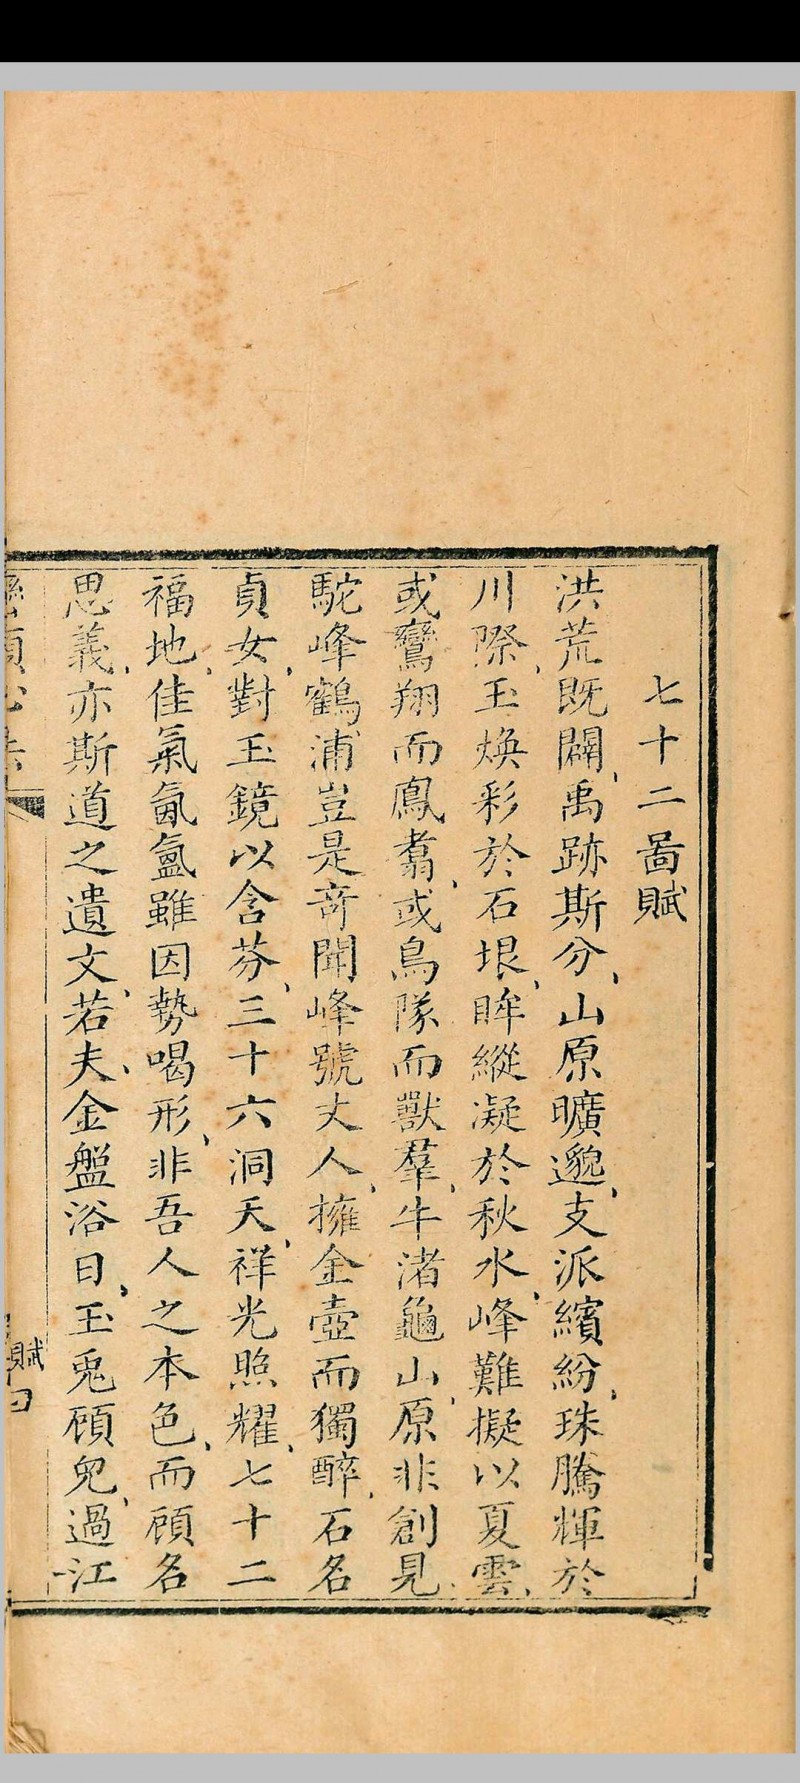 七十二啚賦
洪荒既闢、禹跡斯分、山原曠邈、支派繽紛、珠騰輝於
川際、玉煥彩於石垠、眸縱凝於秋水、峰難擬以夏雲、
或鸞翔而鳳翥、或鳥隊而獸羣、牛渚龜山、原非創見、
駝峰鶴浦、豈是奇聞、峰號丈人、擁金壺而獨醉、石名
貞女、對玉鏡以含芬、三十六洞天、祥光照耀、七十二
福地、佳氣氤氳、雖因勢喝形、非吾人之本色、而顧名
思義、亦斯道之遺文、若夫、金盤浴日、玉兎顧兒、過江
賦